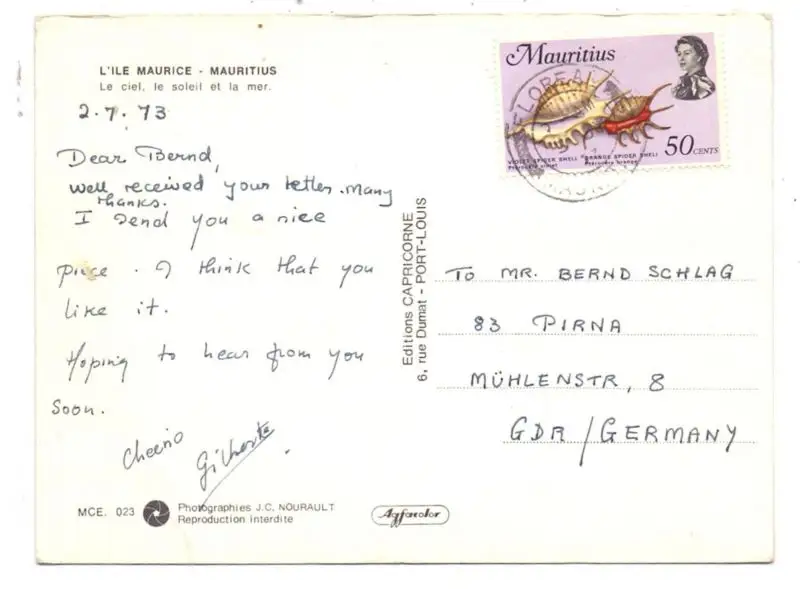 L'ILE MAURICE - MAURITIUS
Le ciel, le soleil et la mer.
2.7.73
Dear Bernd,
well received your letter. Many
thanks.
I send you a nice
piece. I think that you
like it.
Hoping to hear from you
soon.
Cheerio
MCE. 023
Photographies J.C. NOURAULT
Reproduction interdite
Agfacolor
Editions CAPRICORNE
6, rue Dumat - PORT-LOUIS
Mauritius
FLOREAL
VIOLET SPIDER SHELL ORANGE SPIDER SHELL
50 CENTS
TO MR. BERND SCHLAG
83 PIRNA
MÜHLENSTR, 8
GDR / GERMANY